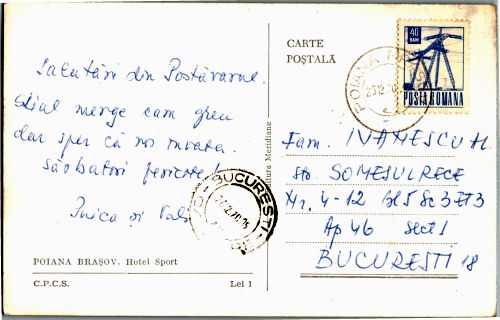 Salutări din Postăvarul.
Skiul merge cam greu
dar sper că voi învăța.
Sărbători fericite!
Puica și Vali
POIANA BRAȘOV. Hotel Sport
C.P.C.S.
Lei 1
Editura Meridiane
CARTE
POȘTALĂ
40
BANI
POSTA ROMANA
POIANA
BUCUREȘTI
Fam. IVĂNESCU M.
Str. SOMEȘUL RECE
Nr. 4-12 Bl 5 Sc 3 ET 3
Ap 46 sect 1
BUCUREȘTI 18